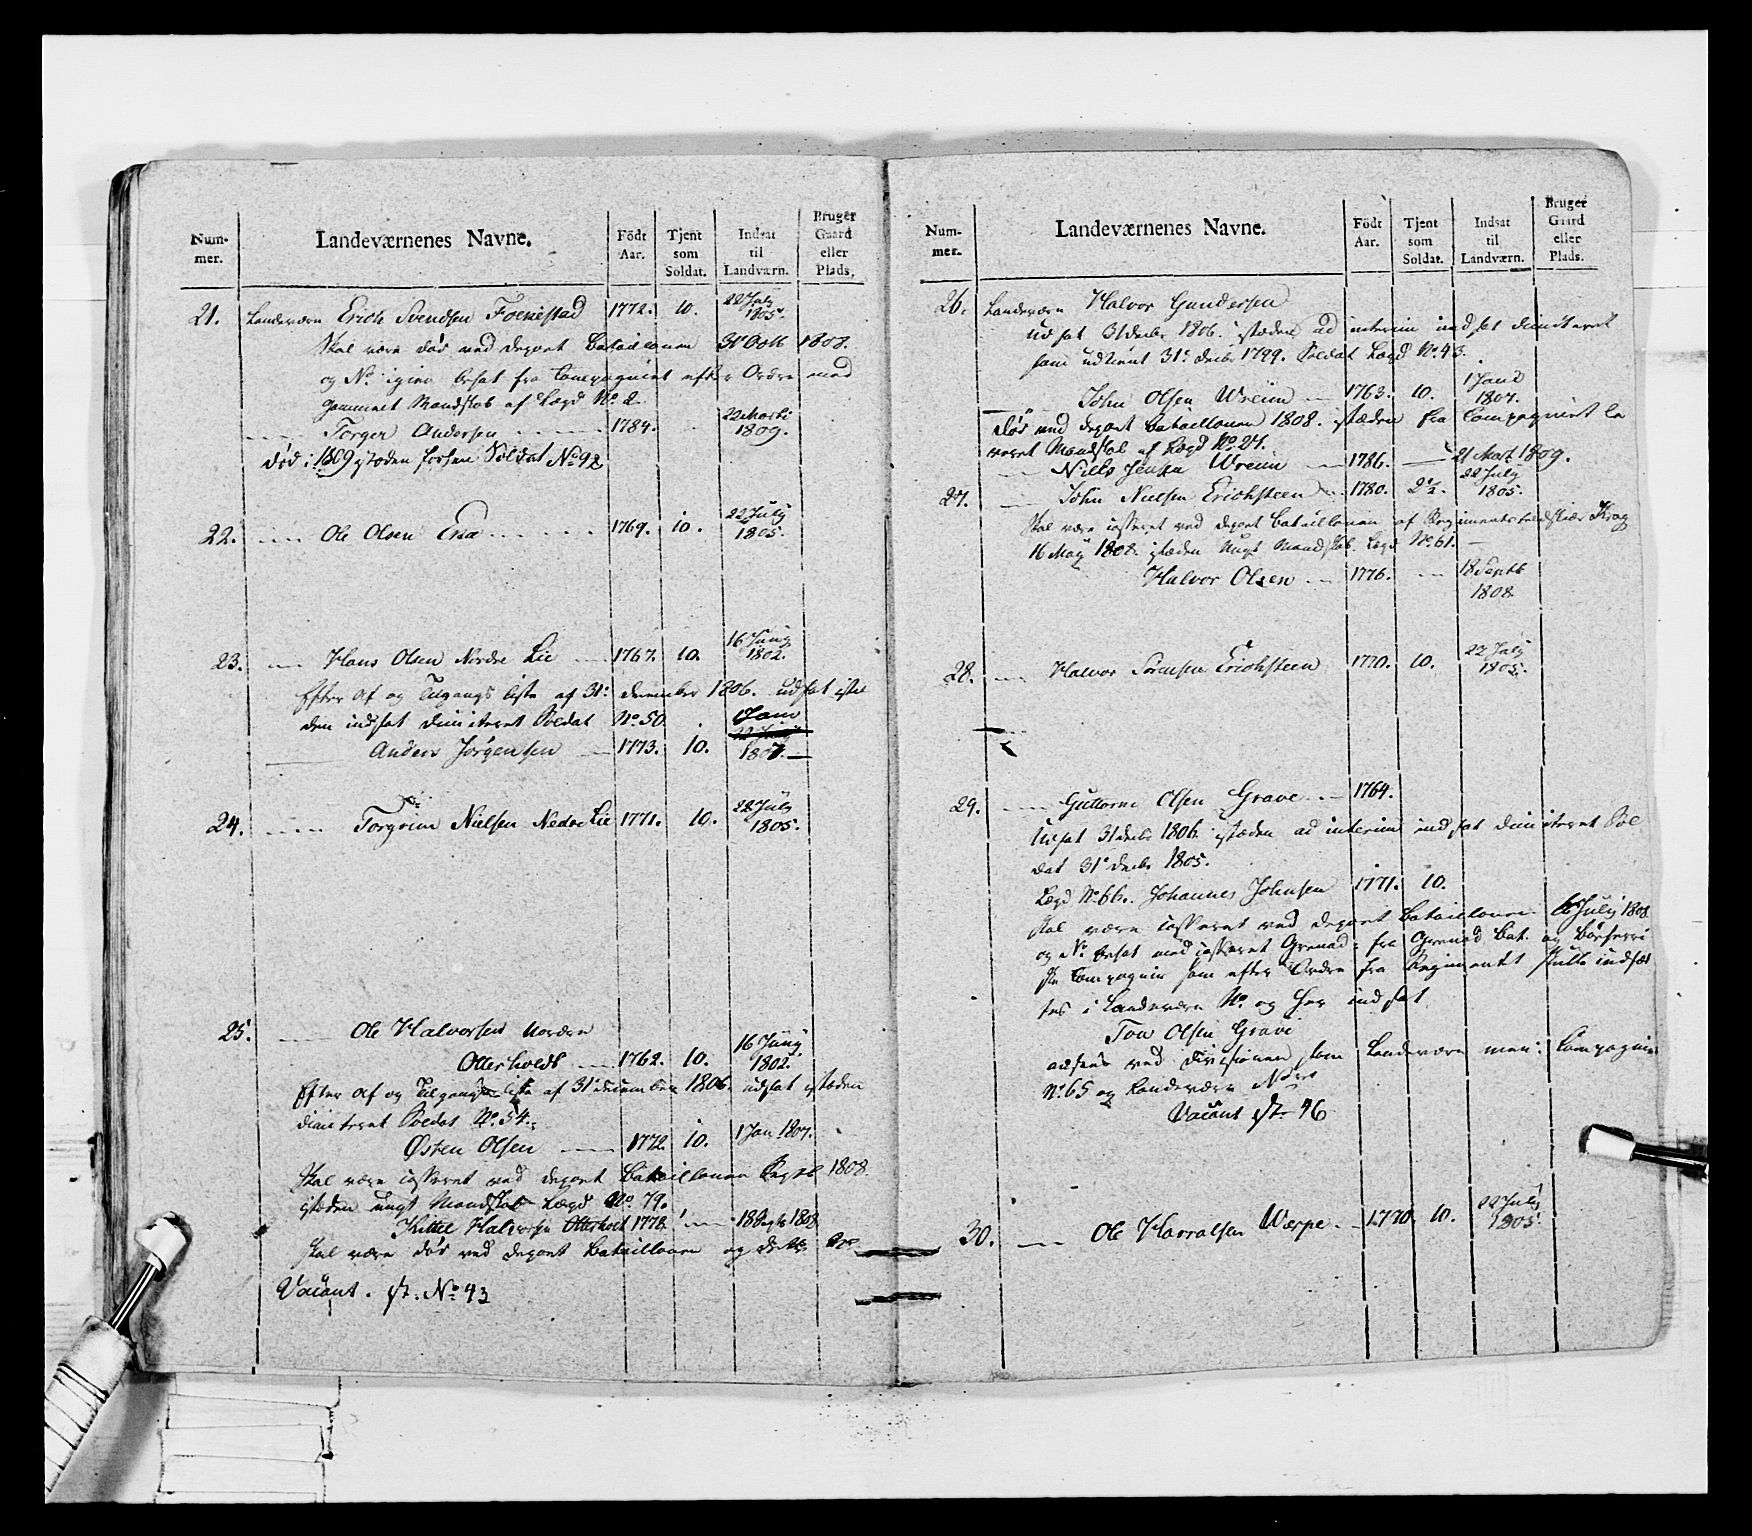 Num-
mer.
Landeværnenes Navne.
Födt
Aar.
Tjent
som
Soldat.
Indsat
til
Landværn.
Bruger
Gaard
eller
Plads.
21. Landeværn Erich Svendsen Foenestad 1772. 10. 22 July 1805.
Skal være död ved depoet Bataillonen 31 Octb 1808.
og No igien besat fra Compagniet efter Ordre med
gammelt Mandskab af Lægd No 2
Torger Andersen 1784. 22 Martz 1809.
död i 1809 istæden forsen Soldat No 92
22. Ole Olsen Ena 1769. 10. 22 July 1805.
23. Hans Olsen Nordre Lie 1767. 10. 16 Juny 1802.
Efter af og Tilgangs liste af 31e december 1806. udsat istæ
den indsat dimiteret Soldat No 50.
Anders Jörgensen 1773. 10. 1 Janv 1807.
24. Torgrim Nielsen Nedre Lie 1771. 10. 22 July 1805.
25. Ole Halvorsen Nordre
Otterholdt 1762. 10. 16 Juny 1802.
Efter af og Tilgangs liste af 31e december 1806. udsat istæden
dimiteret Soldat No. 54.
Østen Olsen 1772 10. 1 Jan 1807.
Skal være casseret ved depoet Bataillonen Septb 1808
istæden ungt Mandskab Lægd No. 79.
Kittel Halvorsen Otterholt 1778. 18 Septb 1808
skal være död ved depoet Bataillonen og
Vacant. No. 43
Num-
mer.
Landeværnenes Navne.
Födt
Aar.
Tjent
som
Soldat.
Indsat
til
Landværn.
Bruger
Gaard
eller
Plads.
26. Landeværn Halvor Gundersen
udsat 31 decbr 1806. istæden ad interim indsat dimiteret
som udtient 31e decbr 1799. Soldat Lægd No. 43.
John Olsen Wreim 1763. 10. 1 Janv 1807.
död ved depoet Bataillonen 1808. istæden fra Compagniet le
veret Mandskab af Lægd No. 27.
Niels Jensen Wreim 1786. 21 Mart 1809.
27. John Nielsen Erichsteen 1780. 2 1/2. 22 July 1805.
Skal være casseret ved depoet Bataillonen af Regimentsfeldskiær Krag
16 May 1808. istæden Ungt Mandskab Lægd No. 61.
Halvor Olsen 1776. 18 Septb 1808.
28. Halvor Sörensen Erichsteen 1770. 10. 22 July 1805.
29. Guttorm Olsen Grave 1764.
Udsat 31 decbr 1806. istæden ad interim indsat dimiteret Sol
dat 31e decbr 1805.
Lægd No. 66. Johannes Johnsen 1771. 10.
skal være casseret ved depoet Bataillonen 6 July 1808
og No besat med casseret Grenad: fra Grenad Bat. og
Compagnie som efter Ordre fra Regimentet skulle indsæt
tes i Landeværn No. og her indsat
Tov Olsen Grave
ansees ved Divisionen som Landeværn men: Compagnie
No. 65 og Landeværn
Vacant 46
30. Ole Harralsen Værpe 1770 10. 22 July 1805.